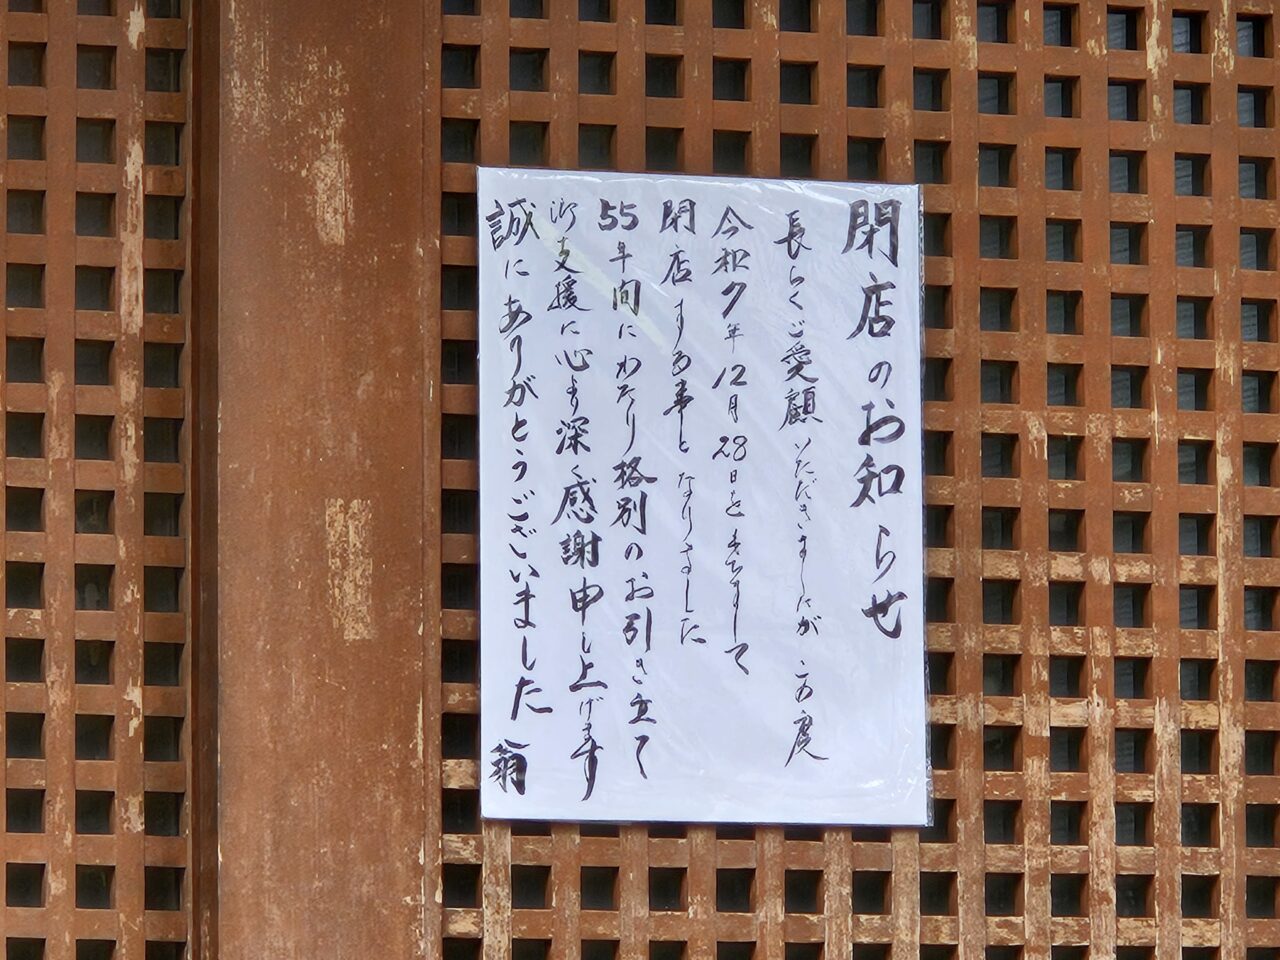 閉店のお知らせ
長らくご愛顧いただきましたが この度
令和7年12月28日をもちまして
閉店する事となりました
55年間にわたり格別のお引き立て
御支援に心より深く感謝申し上げます
誠にありがとうございました 翁